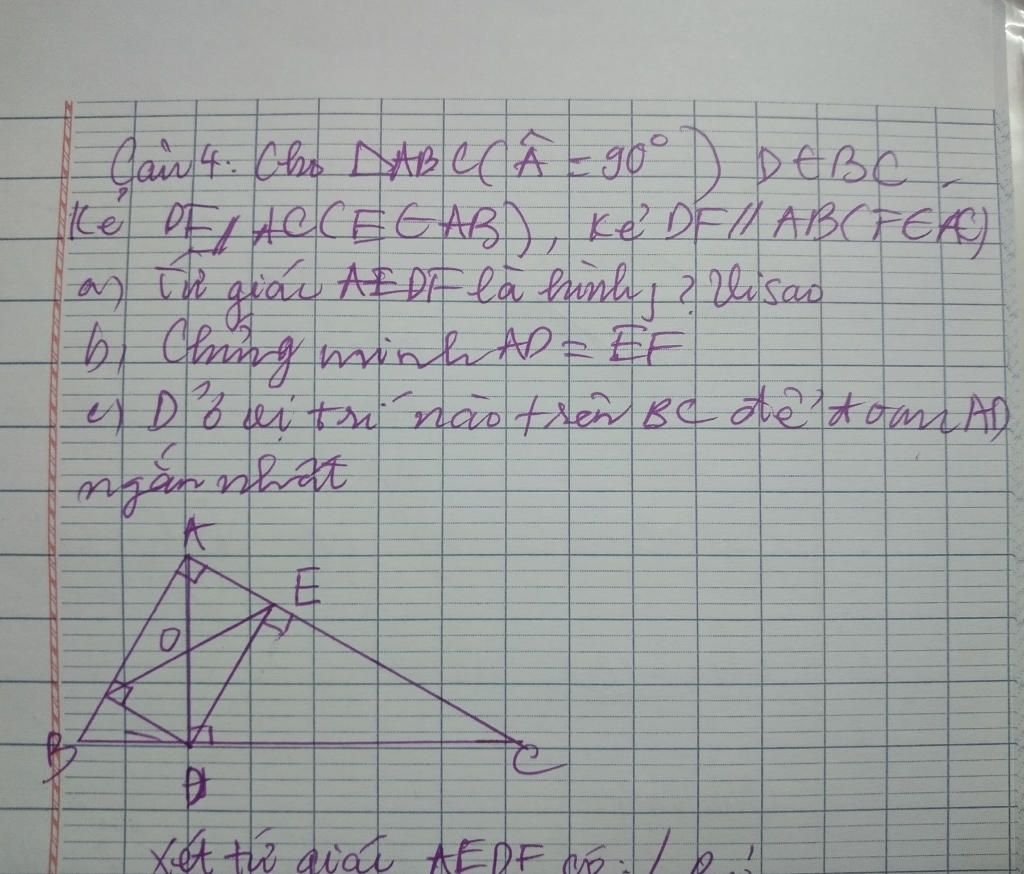 Câu 4: Cho ΔABC (Â = 90°) D ∈ BC
Kẻ DE // AC (E ∈ AB), Kẻ DF // AB (F ∈ AC)
a) Tứ giác AEDF là hình j? Vì sao
b) Chứng minh AD = EF
c) D ở vị trí nào trên BC để đoạn AD
ngắn nhất
A
E
O
B
D
C
Xét tứ giác AEDF có: